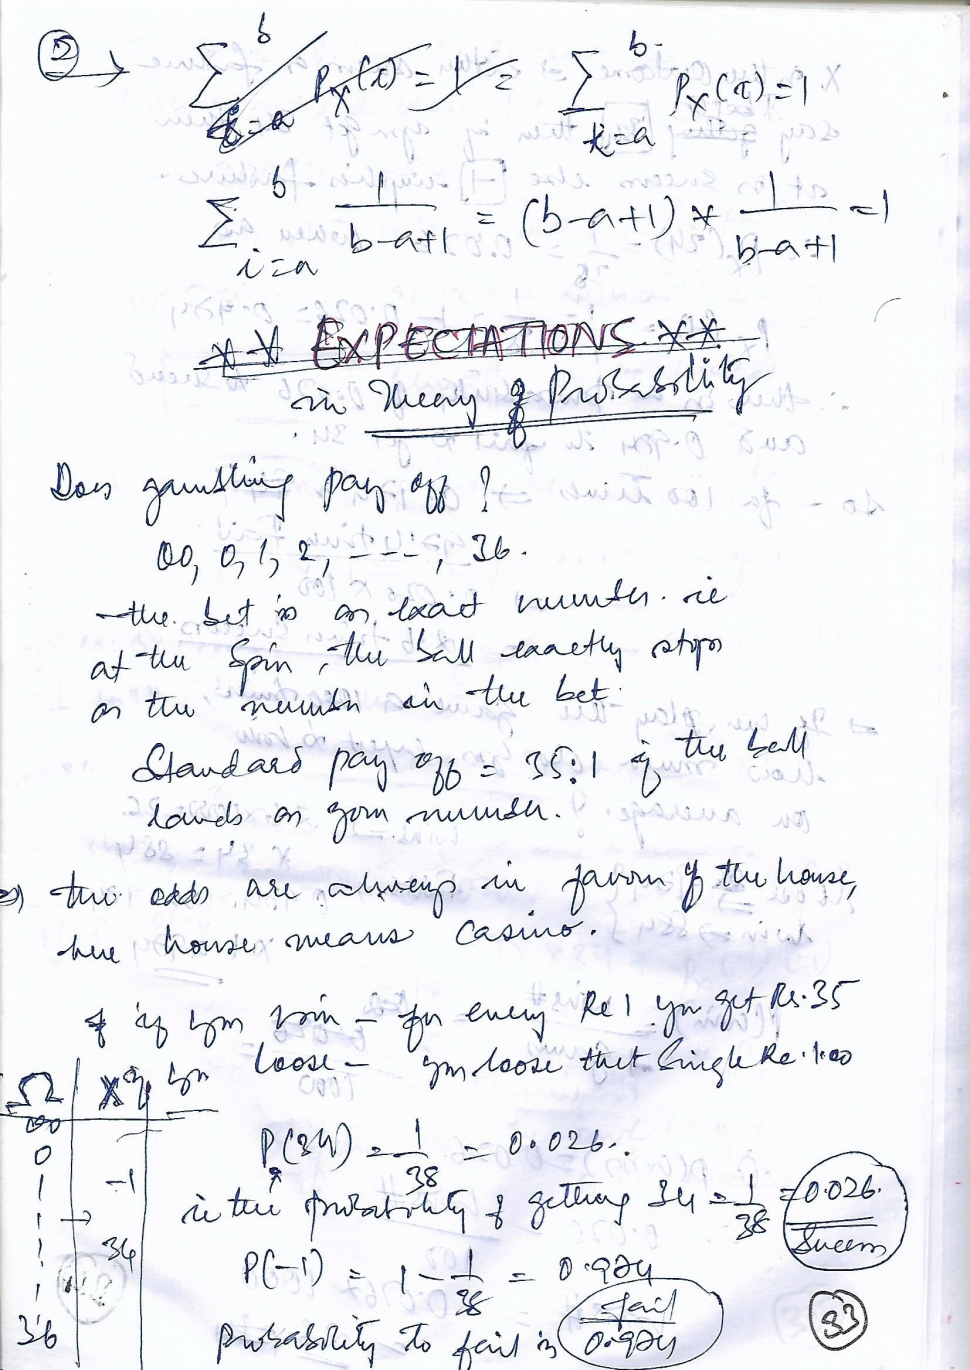 ② → ∑ b i=a P_X(x) = 1 = ∑ b x=a P_X(x) = 1
∑ b i=a 1/(b-a+1) = (b-a+1) * 1/(b-a+1) = 1
** EXPECTATIONS **
in Theory of Probability
Does gambling pay off?
00, 0, 1, 2, ----, 36.
the bet is on exact number. ie
at the spin, the ball exactly stops
on the number in the bet.
Standard pay off = 35:1 if the ball
lands on your number.
⇒ the odds are always in favour of the house,
here house means casino.
if you win - for every Re 1 you get Rs. 35
if you loose - you loose that single Re. 1.00
Ω X
00
0
1 -1
34
36
P(34) = 1/38 = 0.026.
ie the probability of getting 34 = 1/38 = 0.026.
Success
P(-1) = 1 - 1/38 = 0.974
fail
probability to fail is 0.974
33